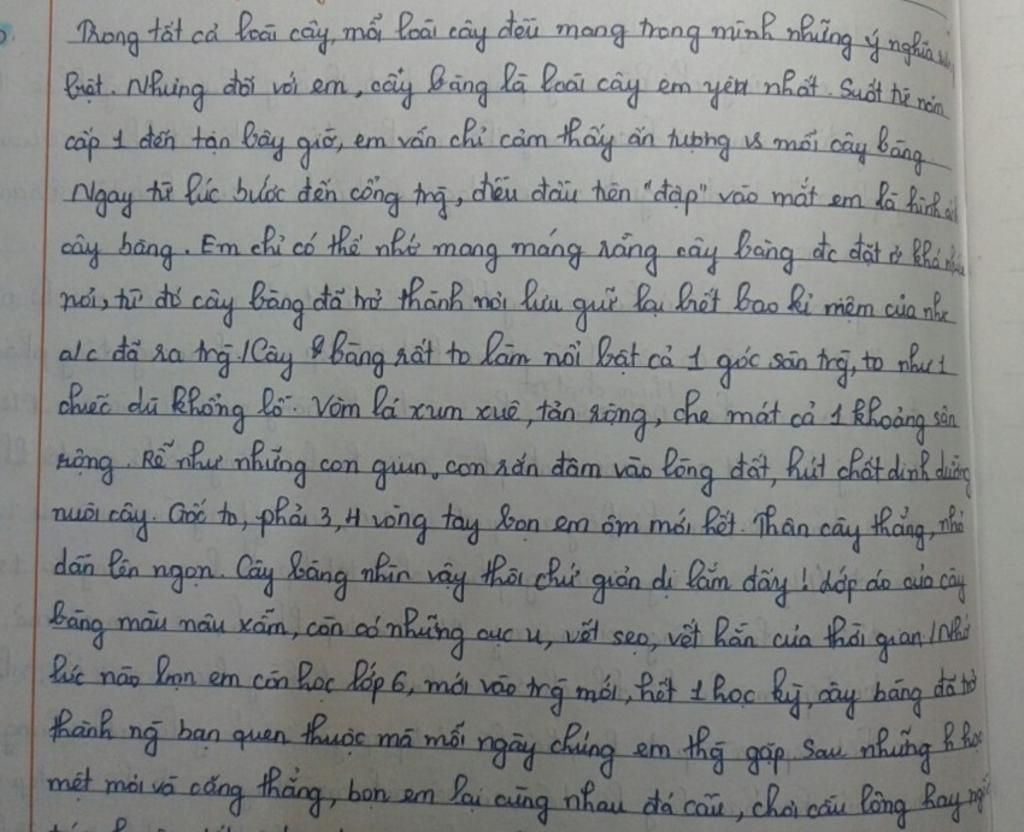 Trong tất cả loài cây, mỗi loài cây đều mang trong mình những ý nghĩa
biệt. Nhưng đối với em, cây bàng là loài cây em yêu nhất. Suốt từ năm
cấp 1 đến tận bây giờ, em vẫn chỉ cảm thấy ấn tượng vs mỗi cây bàng
Ngay từ lúc bước đến cổng trg, điều đầu tiên "đập" vào mắt em là hình
cây bàng. Em chỉ có thể nhớ mang máng rằng cây bàng đc đặt ở khá
nơi, từ đó cây bàng đã trở thành nơi lưu giữ lại biết bao kỉ niệm của
a/c đã ra trg./Cây bàng rất to làm nổi bật cả 1 góc sân trg, to như 1
chiếc dù khổng lồ. Vòm lá xum xuê, tán rộng, che mát cả 1 khoảng sân
rộng. Rễ như những con giun, con rắn đâm vào lòng đất, hút chất dinh dưỡng
nuôi cây. Gốc to, phải 3, 4 vòng tay bọn em ôm mới hết. Thân cây thẳng, nhỏ
dần lên ngọn. Cây bàng nhìn vậy thôi chứ giản dị lắm đấy! Lớp áo của cây
bàng màu nâu xẫm, còn có những cục u, vết sẹo, vết hằn của thời gian/Nhớ
lúc nào bọn em còn học lớp 6, mới vào trg mới, hết 1 học kỳ, cây bàng đã trở
thành ng bạn quen thuộc mà mỗi ngày chúng em thg gặp. Sau những h học
mệt mỏi và căng thẳng, bọn em lại cùng nhau đá cầu, chơi cầu lông hay